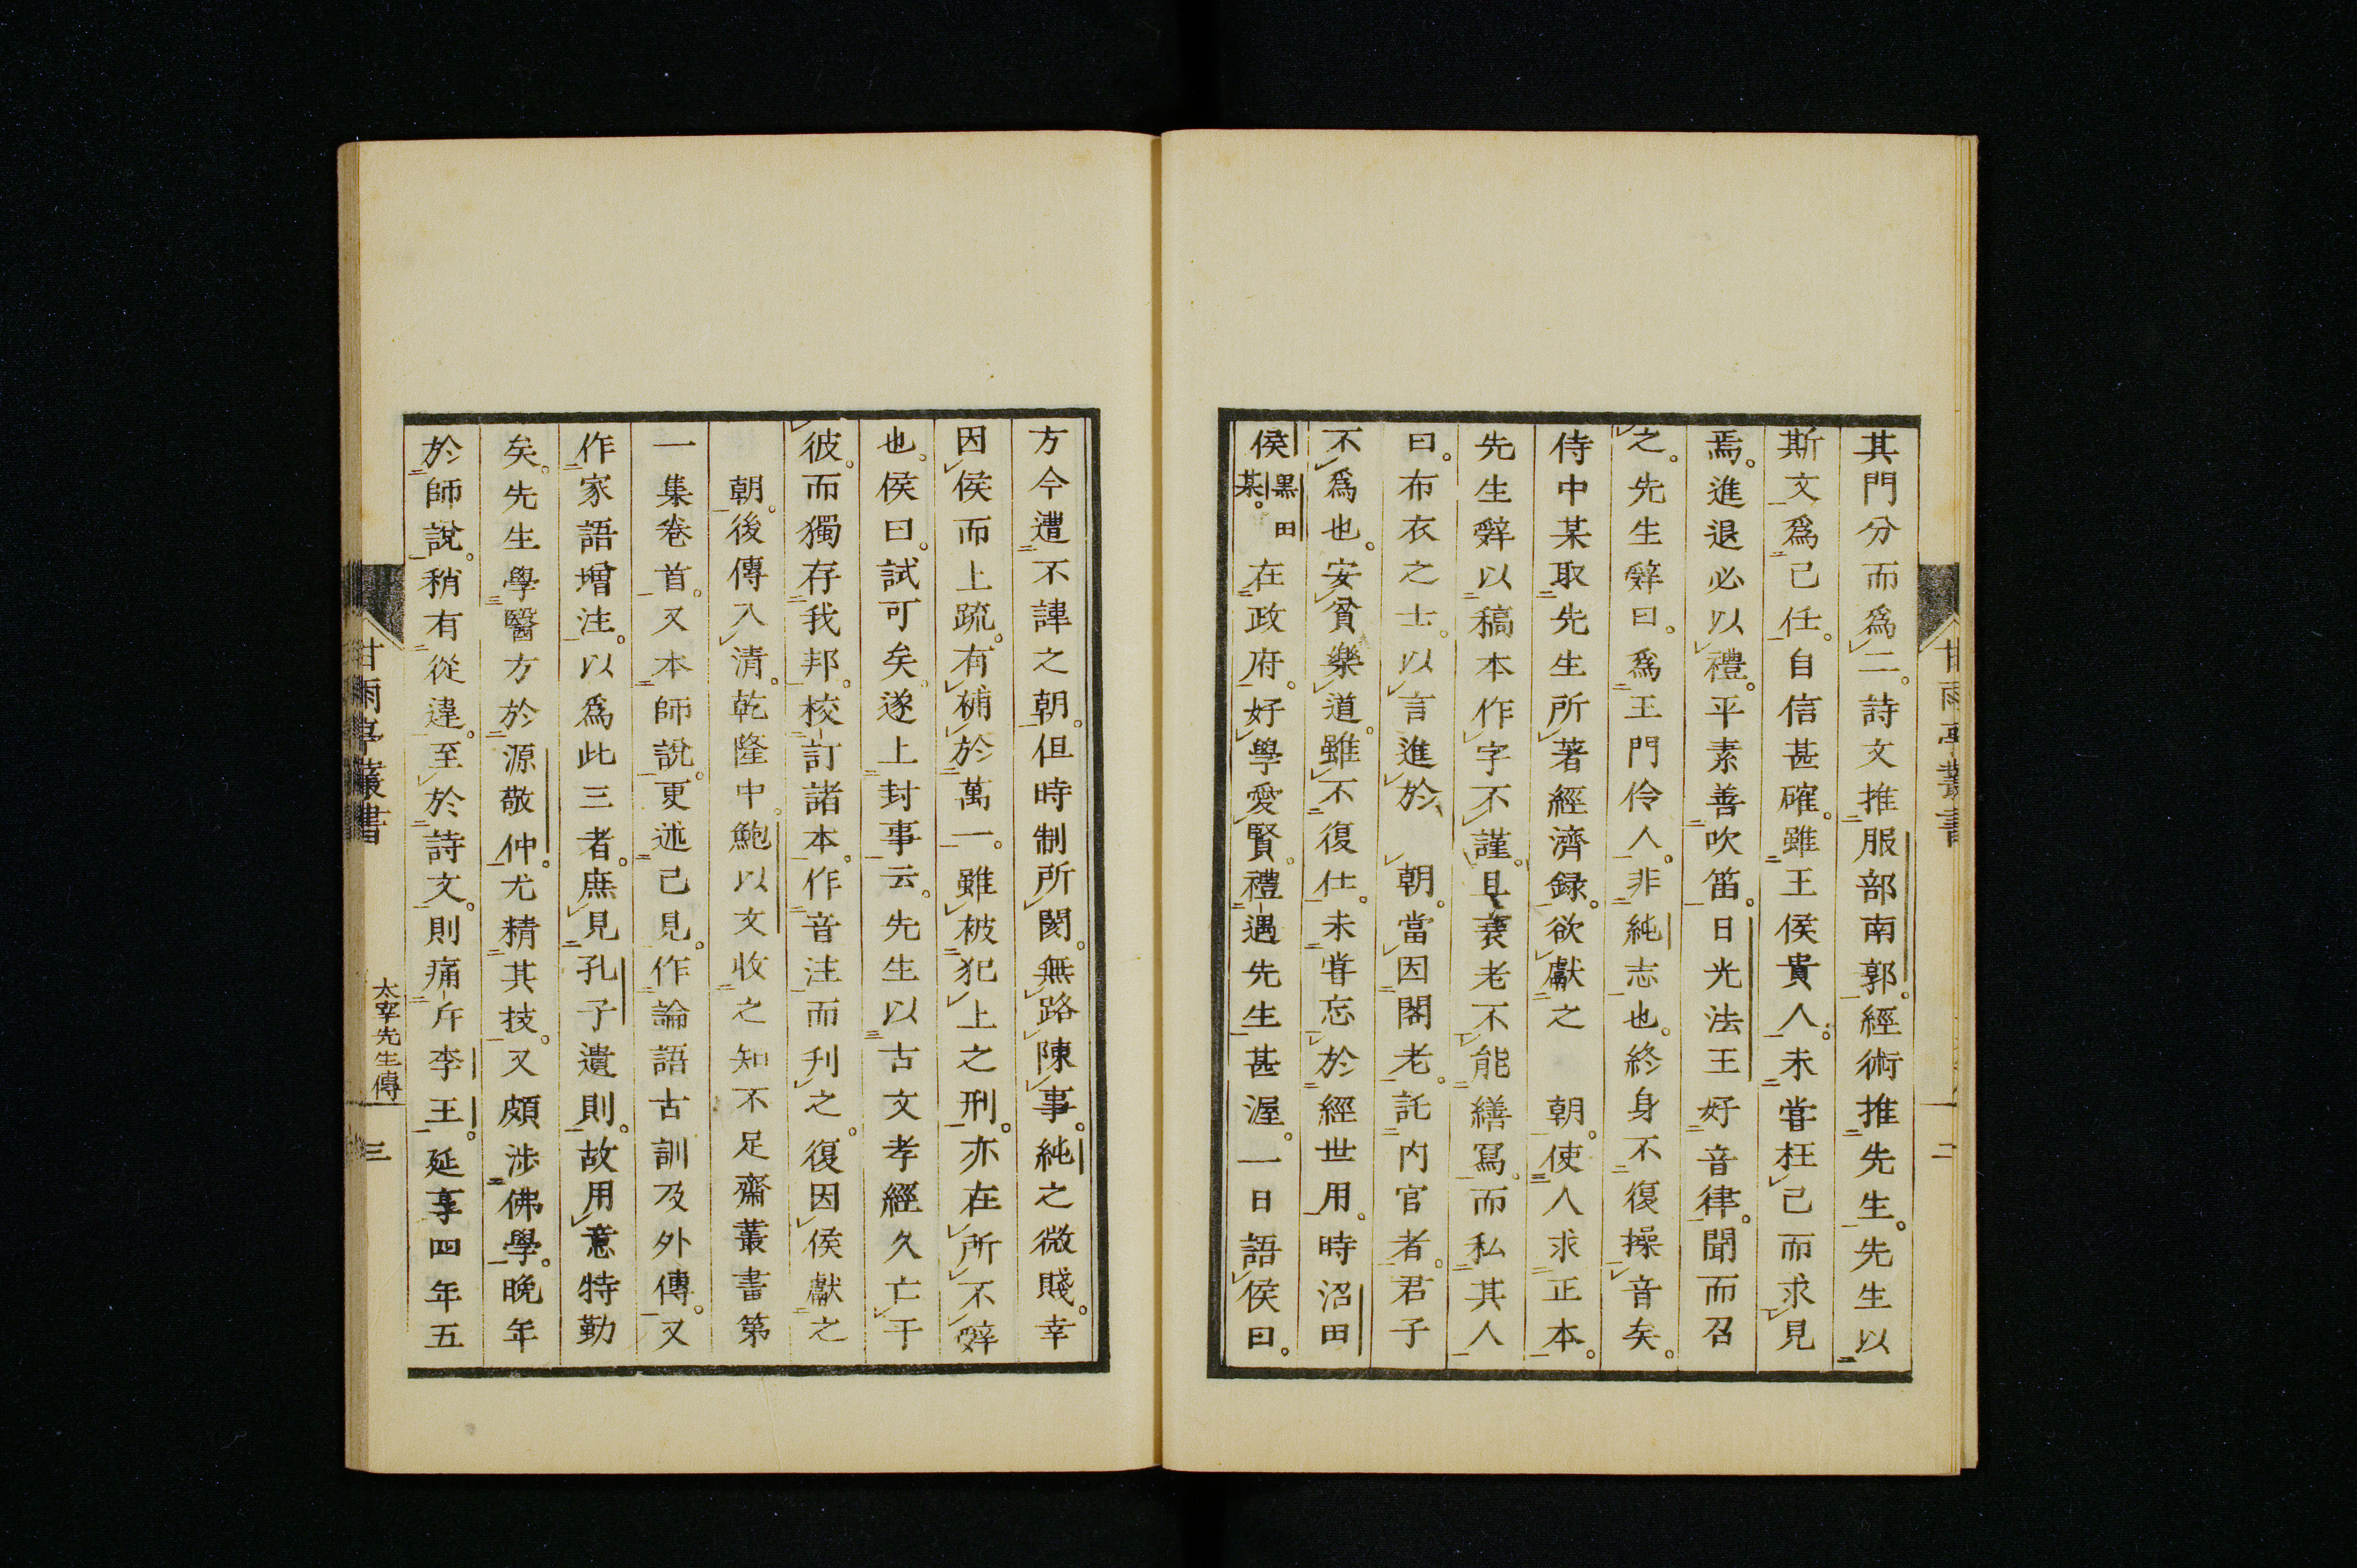 其門分而爲二。詩文推服部南郭。經術推先生。先生以
斯文爲己任。自信甚確。雖王侯貴人。未甞枉己而求見
焉。進退必以禮。平素善吹笛。日光法王好音律。聞而召
之。先生辤曰。爲王門伶人。非純志也。終身不復操音矣。
侍中某取先生所著經濟録。欲獻之　朝。使人求正本。
先生辤以稿本作字不謹。且衰老不能繕寫。而私其人
曰。布衣之士。以言進於　朝。當因閣老。託内官者。君子
不爲也。安貧樂道。雖不復仕。未甞忘於經世用。時沼田
侯黒田某。在政府。好學愛賢。禮遇先生甚渥。一日語侯曰。
甘雨亭叢書
二
方今遭不諱之朝。但時制所闕。無路陳事。純之微賤。幸
因侯而上疏。有補於萬一。雖被犯上之刑。亦在所不辤
也。侯曰。試可矣。遂上封事云。先生以古文孝經久亡于
彼。而獨存我邦。校訂諸本。作音注而刋之。復因侯獻之
朝。後傳入清。乾隆中。鮑以文收之知不足齋叢書第
一集卷首。又本師說。更述己見。作論語古訓及外傳。又
作家語增注。以爲此三者。庶見孔子遺則。故用意特勤
矣。先生學醫方於源敬仲。尤精其技。又頗渉佛學。晚年
於師說。稍有從違。至於詩文。則痛斥李王。延享四年五
甘雨亭叢書
太宰先生傳
三